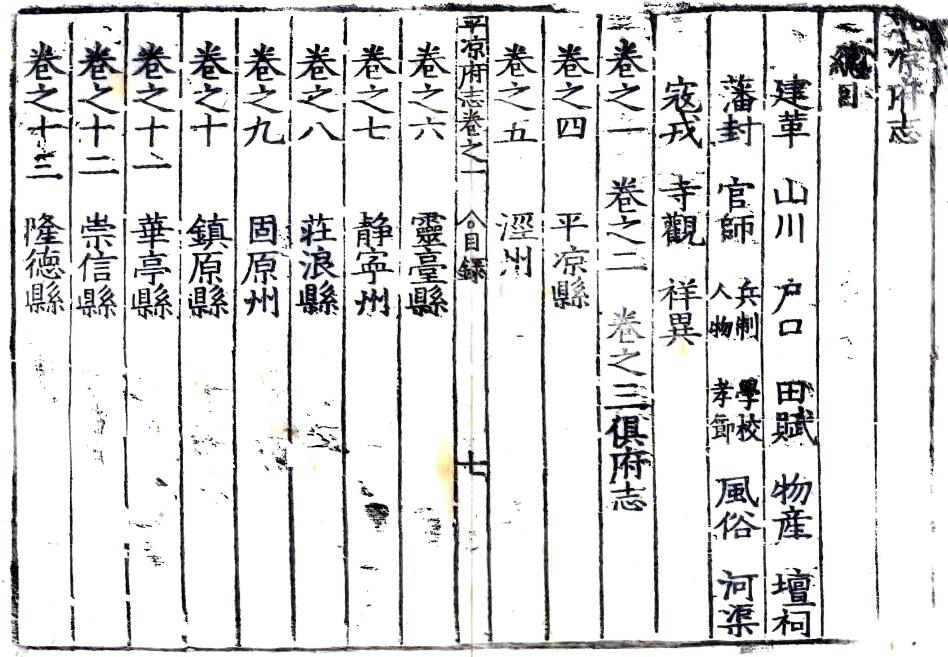 凉府志
總目
建革 山川 户口 田賦 物産 壇祠
藩封 官師 兵制 人物 學校 孝節 風俗 河渠
寇戎 寺觀 祥異
卷之一 卷之二 卷之三俱府志
卷之四 平凉縣
卷之五 涇州
平凉府志卷之一 目録 七
卷之六 靈臺縣
卷之七 静寧州
卷之八 莊浪縣
卷之九 固原州
卷之十 鎮原縣
卷之十一 華亭縣
卷之十二 崇信縣
卷之十三 隆德縣